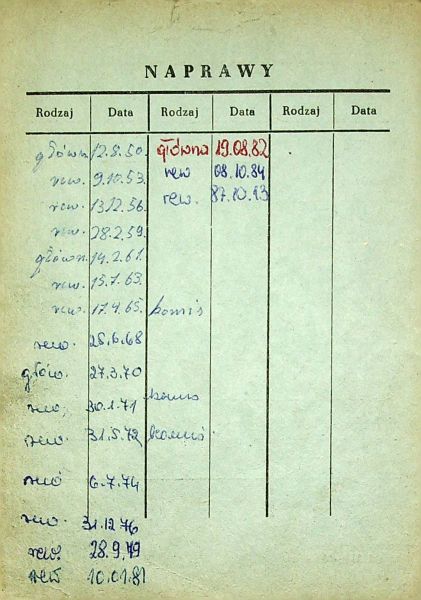 NAPRAWY
Rodzaj Data Rodzaj Data Rodzaj Data
główna 12.8.50. główna 19.08.82
rew. 9.10.53. rew 08.10.84
rew. 13.12.56. rew. 87.10.13
rew. 28.2.59.
główn. 14.2.61.
rew. 15.7.63.
rew. 17.4.65. komis
rew. 28.6.68
głów. 27.3.70
rew. 30.1.71
rew. 31.5.72
6.7.74.
rew. 31.12.76
rew. 28.9.79
rew 10.01.81